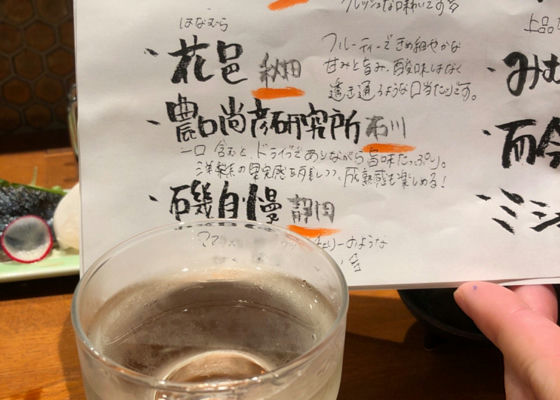 フレッシュな味わいです
はなむら
花邑 秋田
フルーティーできめ細やかな
甘みと旨み、酸味はなく
透き通るような口当たりです。
農口尚彦研究所 石川
一口含むと、ドライでありながら旨味たっぷり。
成熟感を楽しめる!
磯自慢 静岡
のような
上品
みむ
而今
ミシ